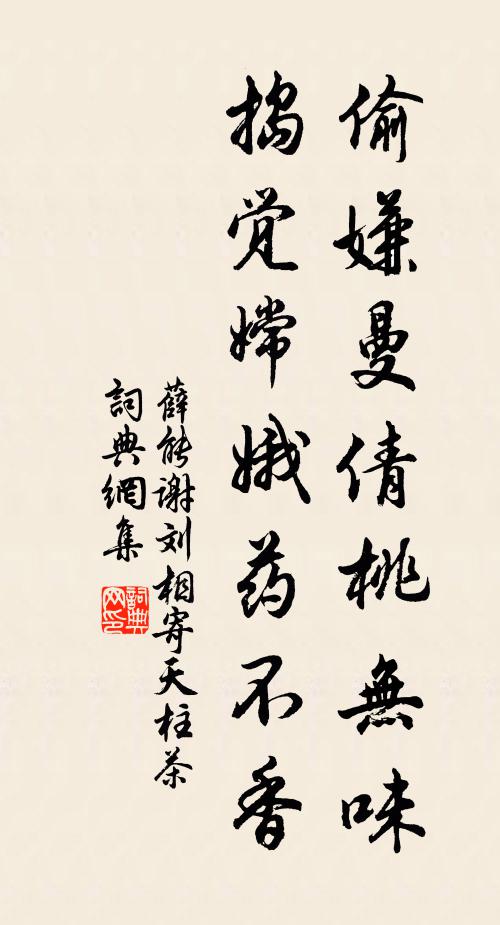 偷嫌曼倩桃無味
捣觉嫦娥药不香
薛能谢刘相寄天柱茶
詞典網集
詞典网印